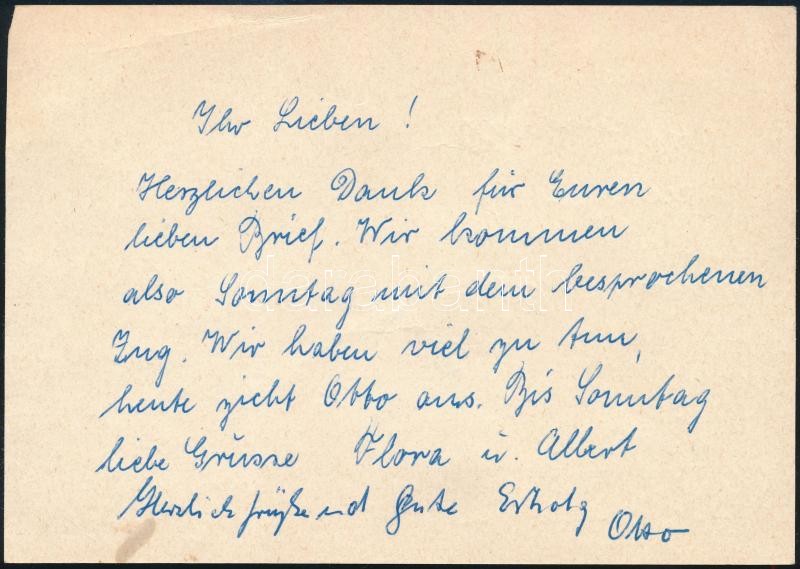 Ihr Lieben!
Herzlichen Dank für Euren
lieben Brief. Wir kommen
also Sonntag mit dem besprochenen
Zug. Wir haben viel zu tun,
heute zieht Otto aus. Bis Sonntag
liebe Grüsse Flora u. Albert
Gute
Otto
darabanth